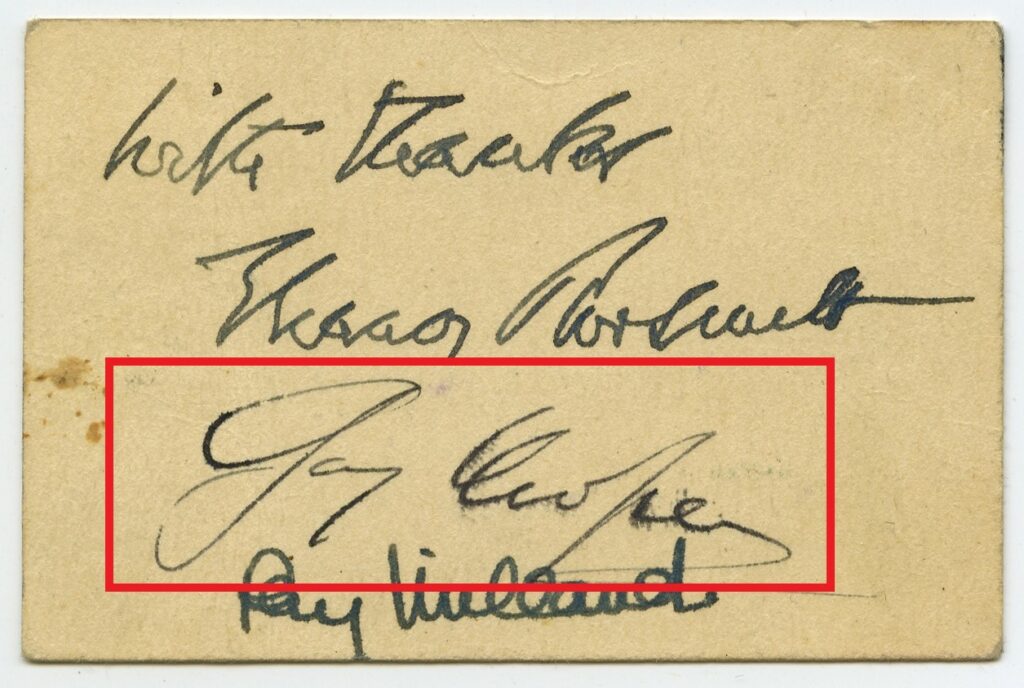 With thanks
Eleanor Roosevelt
Gary Cooper
Ray Milland